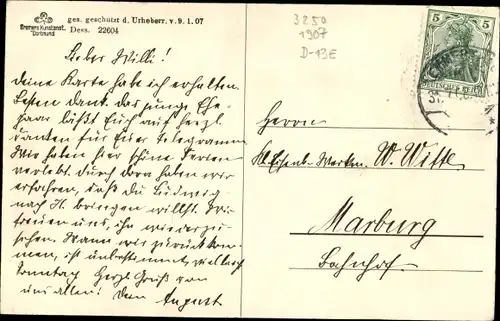 Cramers Kunstanst.
Dortmund
ges. geschützt d. Urheberr. v. 9. 1. 07
Dess. 22604
3250
1907
D-13E
5 5
DEUTSCHES REICH
Lieber Willi!
Deine Karte habe ich erhalten.
Besten Dank. das junge Ehe-
paar läßt Euch auf herzl.
danken für Euer Telegramm.
Wir haben hier schöne Ferien
verlebt. Durch Dora haben wir
erfahren, daß du Ludwig
nach H. bringen willst. Wir
freuen uns, ihn wiederzu-
sehen. Wann wir zurückkom-
men, ist unbestimmt, vielleicht
Sonntag. Herzl. Gruß von
uns allen! Dein August
Herrn
W. Witte
Marburg
Bahnhof.